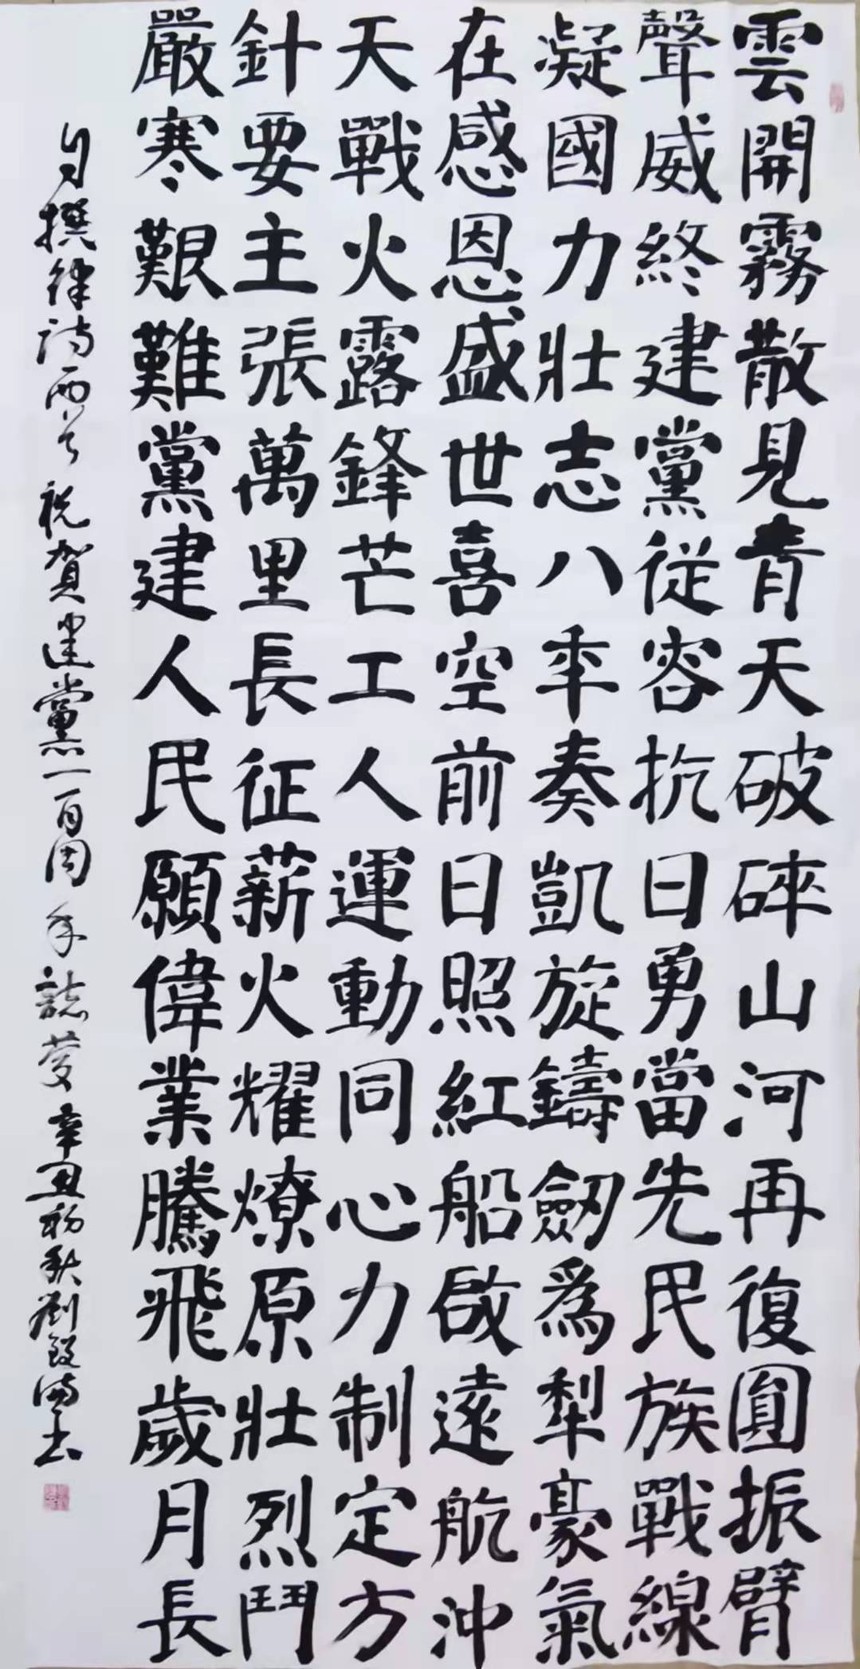 雲開霧散見青天破碎山河再復圓振臂
聲威終建黨從容抗日勇當先民族戰線
凝國力壯志八年奏凱旋鑄劒爲犁豪氣
在感恩盛世喜空前日照紅船啟遠航沖
天戰火露鋒芒工人運動同心力制定方
針要主張萬里長征薪火耀燎原壯烈鬥
嚴寒艱難黨建人民願偉業騰飛歲月長
自撰律诗两首祝賀建黨一百周年誌慶辛丑初秋劉書